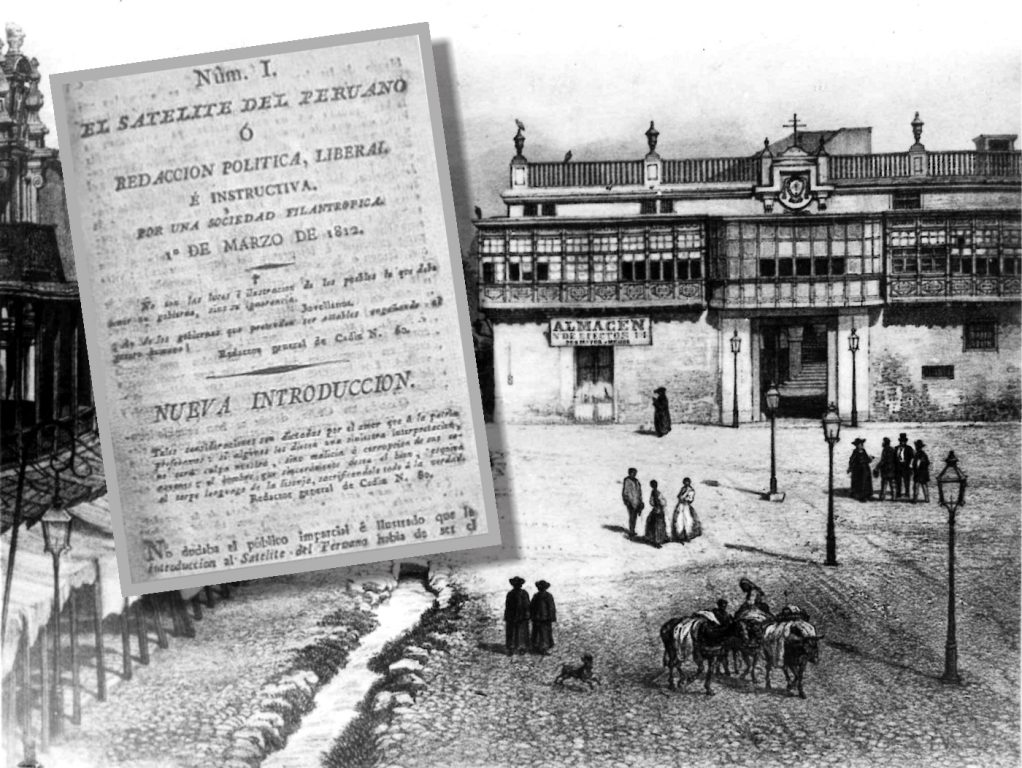 Núm. I.
EL SATELITE DEL PERUANO
Ó
REDACCION POLITICA, LIBERAL
É INSTRUCTIVA.
POR UNA SOCIEDAD FILANTROPICA.
1º DE MARZO DE 1812.
No son las luces é ilustracion de los pueblos lo que debe
temer un gobierno, sino su ignorancia. Jovellanos.
¡Ay de los gobiernos que pretenden ser estables engañando al
genero humano! Redactor general de Cadiz N. 60.
NUEVA INTRODUCCION.
Tales consideraciones son dictadas por el amor que á la patria
profesamos: si algunos les dieren una siniestra interpretacion,
no será culpa nuestra, sino malicia ó corrupcion de sus
y el hombre que sinceramente desea el bien,
el torpe lenguage de la lisonja, sacrificandolo todo á la verdad.
Redactor general de Cadiz N. 80.
No dudaba el público imparcial é ilustrado que la
introduccion al Satelite del Peruano habia de ser el
ALMACEN